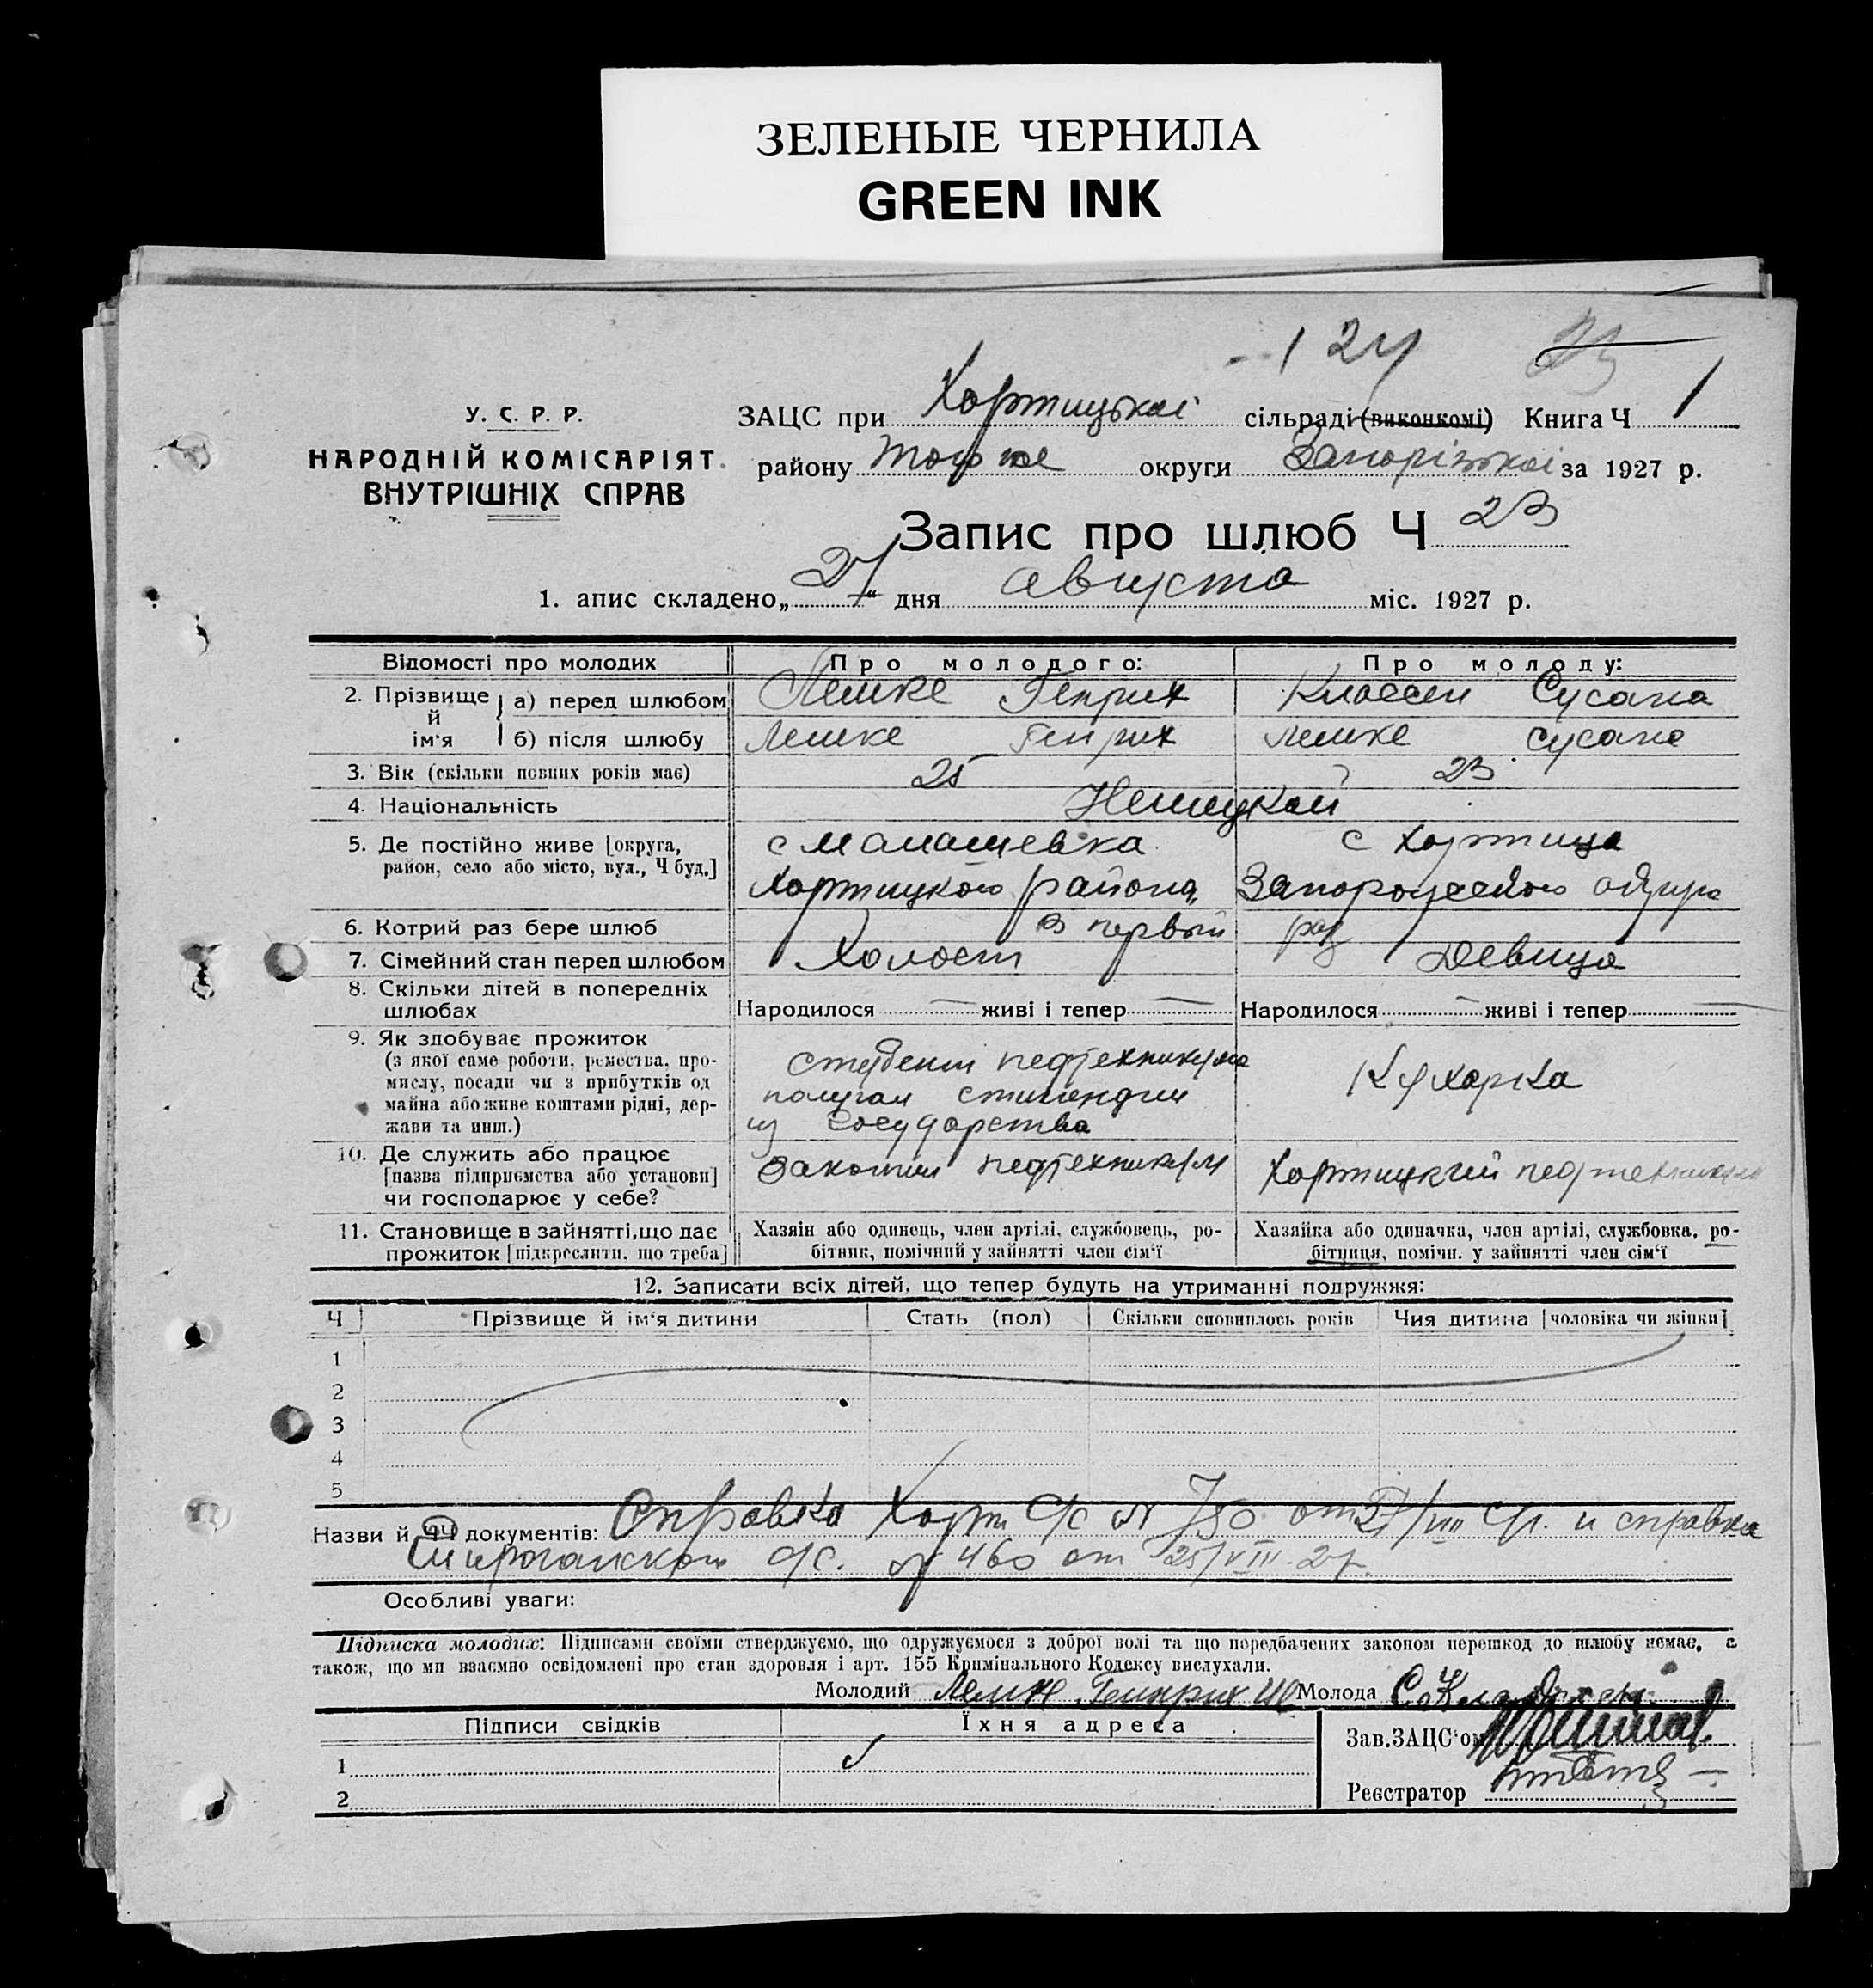 ЗЕЛЕНЫЕ ЧЕРНИЛА
GREEN INK
124
У. С. Р. Р.
НАРОДНІЙ КОМІСАРІЯТ
ВНУТРІШНІХ СПРАВ
ЗАЦС при Хортицької сільраді (виконкомі) Книга Ч 1
району того ж округи Запорізької за 1927 р.
Запис про шлюб Ч 23
1. апис складено „27" дня августа міс. 1927 р.
Відомості про молодих Про молодого: Про молоду:
2. Прізвище й ім'я а) перед шлюбом Лемке Генрих Классен Сусана
б) після шлюбу Лемке Генрих Лемке Сусана
3. Вік (скільки повних років має) 25 23
4. Національність Немецкой
5. Де постійно живе [округа, с Манашевка с Хортица
район, село або місто, вул., Ч буд.] Хортицкого района, Запорожского округа
6. Котрий раз бере шлюб в первый раз
7. Сімейний стан перед шлюбом Холост Девица
8. Скільки дітей в попередніх
шлюбах Народилося живі і тепер Народилося живі і тепер
9. Як здобуває прожиток
(з якої саме роботи, ремества, про-
мислу, посади чи з прибутків од
майна або живе коштами рідні, дер-
жави та инш.)
студент педтехникума
получал стипендии
из государства
Кухарка
10. Де служить або працює
[назва підприємства або установи]
чи господарює у себе?
Закончил педтехникум Хортицкий педтехникум
11. Становище в зайнятті, що дає
прожиток [підкреслити, що треба]
Хазяін або одинець, член артілі, службовець, ро-
бітник, помічний у зайнятті член сім'ї
Хазяйка або одиначка, член артілі, службовка, ро-
бітниця, помічн. у зайнятті член сім'ї
12. Записати всіх дітей, що тепер будуть на утриманні подружжя:
Ч Прізвище й ім'я дитини Стать (пол) Скільки сповнилось років Чия дитина [чоловіка чи жінки]
1
2
3
4
5
Назви й ЧЧ документів: Справка Хорт. С/С № 750 от 27/VIII с/г. и справка
с/с. № 460 от 25/VIII 27 г.
Особливі уваги:
Підписка молодих: Підписами своїми стверджуємо, що одружуємося з доброї волі та що передбачених законом перешкод до шлюбу немає, а
також, що ми взаємно освідомлені про стан здоровля і арт. 155 Кримінального Кодексу вислухали.
Молодий Лемке Генрих Молода
Підписи свідків Їхня адреса
1
2
Зав. ЗАЦС'ом
Реєстратор